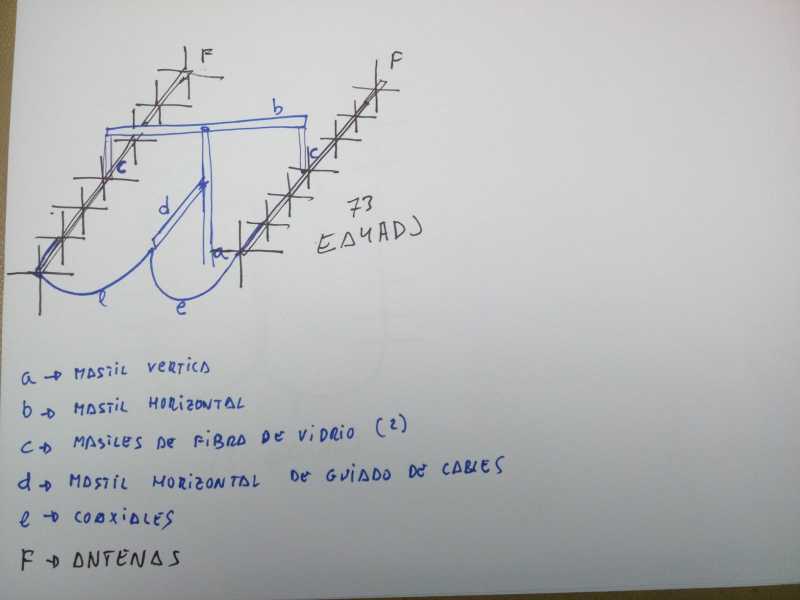 F
F
b
c
c
d
73
EA4ADJ
a
e
e
a → MASTIL VERTICA
b → MASTIL HORIZONTAL
c → MASILES DE FIBRA DE VIDRIO (2)
d → MASTIL HORIZONTAL DE GUIADO DE CABLES
e → COAXIALES
F → ANTENAS